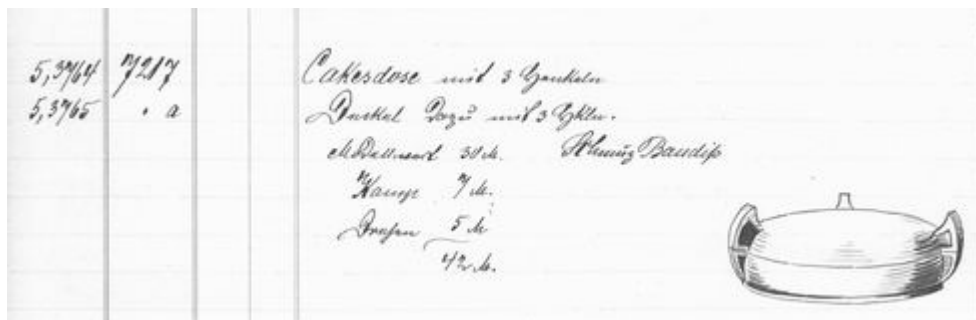 5,3764 7217 Cakesdose mit 3 Henkeln
5,3765 " a Deckel dazu mit 3 Hkln.
Modellwert 30 M. Schmuz Baudiß
Kamp 7 M.
Drehen 5 M
42 M.